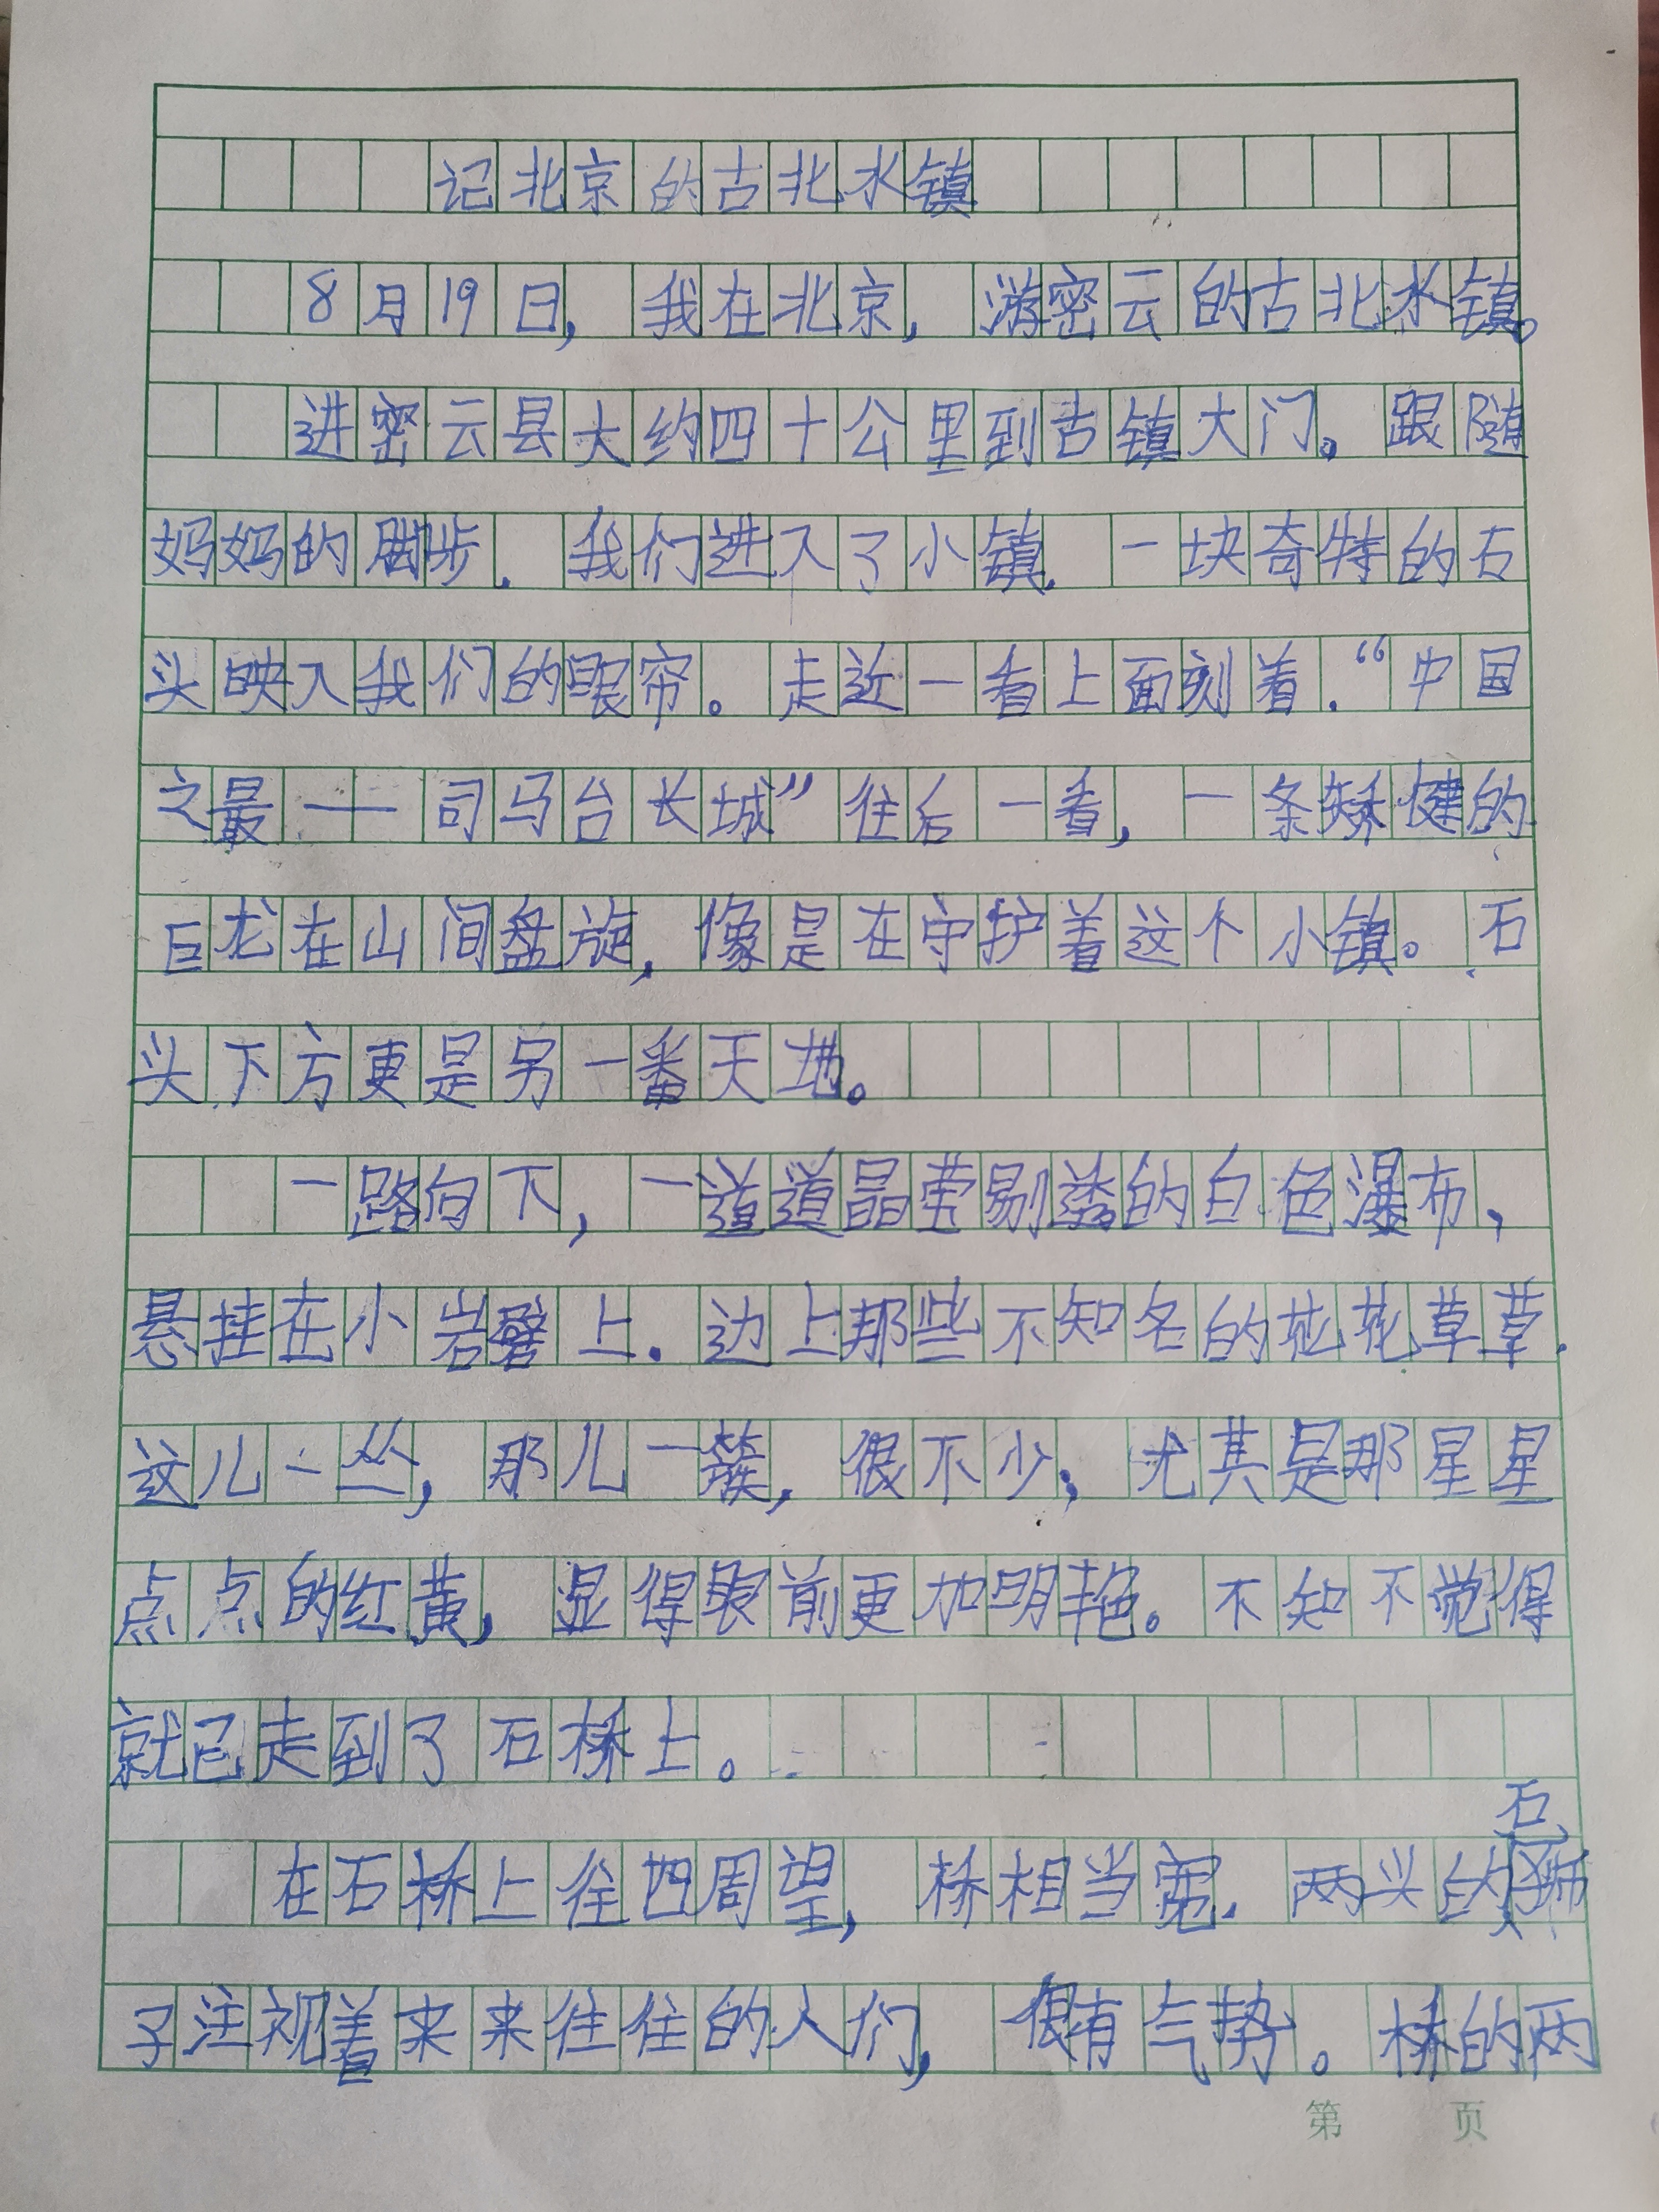 记北京的古北水镇
8月19日，我在北京，游密云的古北水镇。
进密云县大约四十公里到古镇大门。跟随
妈妈的脚步.我们进入了小镇.一块奇特的石
头映入我们的眼帘。走近一看上面刻着.“中国
之最——司马台长城”往后一看，一条矫健的
巨龙在山间盘旋，像是在守护着这个小镇。石
头下方更是另一番天地。
一路向下，一道道晶莹剔透的白色瀑布，
悬挂在小岩壁上.边上那些不知名的花花草草.
这儿一丛，那儿一簇，很不少，尤其是那星星
点点的红黄，显得眼前更加明艳。不知不觉得
就已走到了石桥上。
在石桥上往四周望，桥相当宽.两头的石狮
子注视着来来往住的人们，很有气势。桥的两
第 页